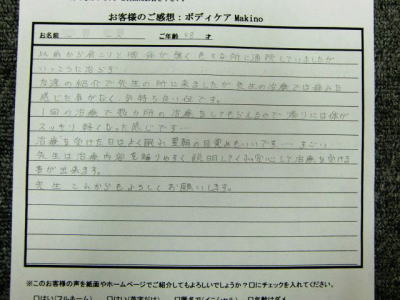 お客様のご感想：ボディケア Makino
お名前 ご年齢 48 才
以前から肩こりと 痛みが強く 色々な所に通院していましたが
いっこうに治らず…
友達の紹介で先生の所に来ましたが 先生の治療では痛みを
感じた事がなく 気持ち良い位です。
1回の治療で数カ所の治療をしてもらえるので 帰りには体が
スッキリ 軽くなった感じです…
治療を受けた日はよく眠れ 翌朝の目覚めもいいです… すごい…
先生は治療内容を解りやすく 説明してくれ安心して治療を受ける
事が出来ます。
先生 これからもよろしく お願いします。
※このお客様の声を紙面やホームページでご紹介してもよろしいでしょうか？□にチェックを入れてください。
□はい(フルネーム) □はい(苗字だけ) □匿名で(イニシャル) □年齢はダメ